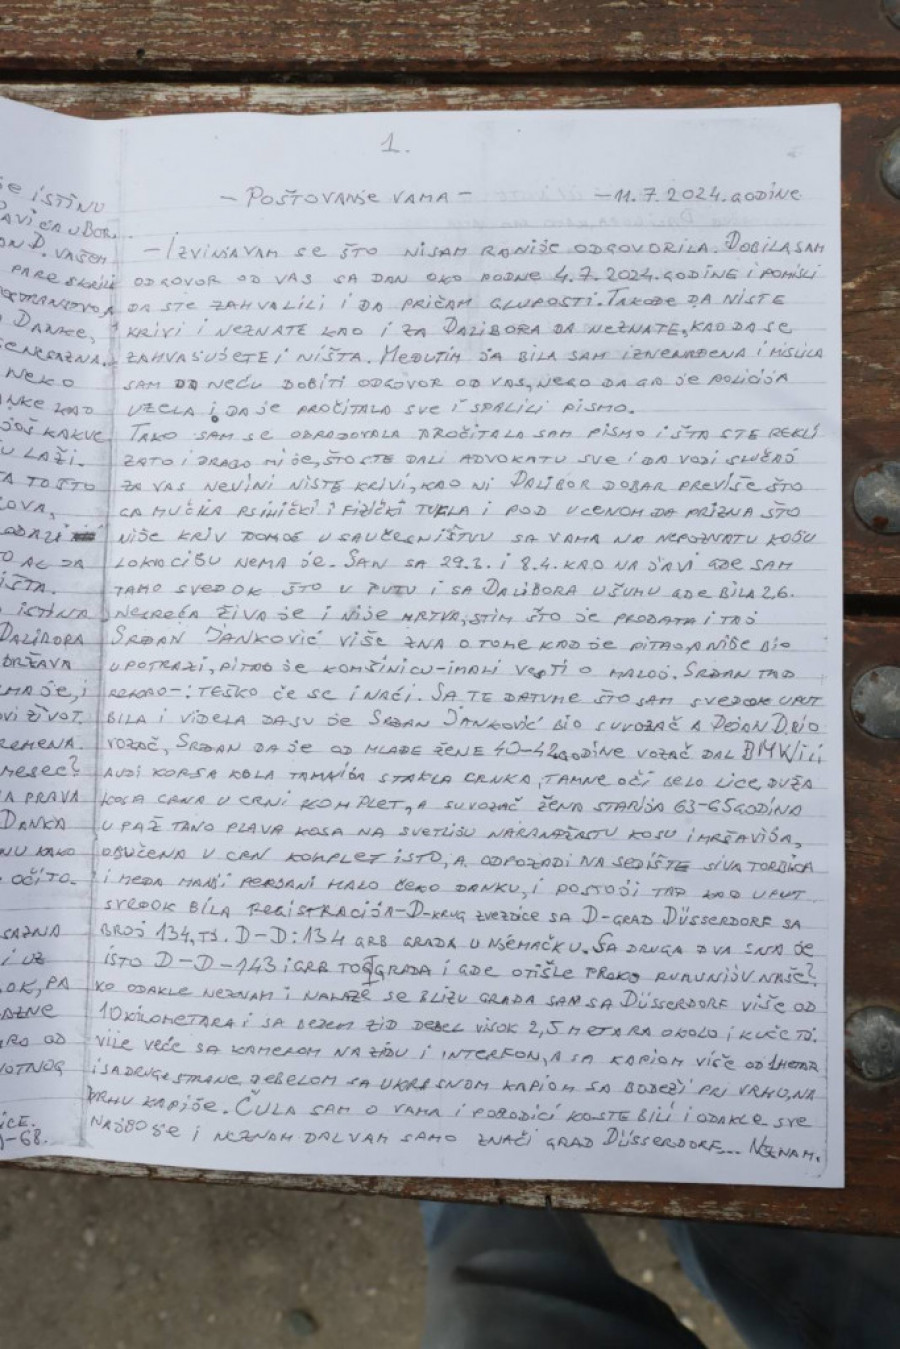 1.
- POŠTOVANJE VAMA - - 11.7.2024. GODINE
- IZVINJAVAM SE ŠTO NISAM RANIJE ODGOVORILA. DOBILA SAM
ODGOVOR OD VAS SA DAN OKO PODNE 4.7.2024. GODINE I POMISLI
DA STE ZAHVALILI I DA PRIČAM GLUPOSTI. TAKOĐE DA NISTE
KRIVI I NEZNATE KAO I ZA DALIBORA DA NEZNATE, KAO DA SE
ZAHVAŠUJETE I NIŠTA. MEĐUTIM JA BILA SAM IZNENAĐENA I MISLILA
SAM DA NEĆU DOBITI ODGOVOR OD VAS, NEGO DA GA JE POLICIJA
UZELA I DA JE PROČITALA SVE I SPALILI PISMO.
TAKO SAM SE OBRADOVALA PROČITALA SAM PISMO I ŠTA STE REKLI
ZATO I DRAGO MI JE, ŠTO STE DALI ADVOKATU SVE I DA VODI SLUČAJ
ZA VAS NEVINI NISTE KRIVI, KAO NI DALIBOR DOBAR PREVIŠE ŠTO
GA MUČIKA PSIHIČKI I FIZIČKI TUKLA I POD UCENOM DA PRIZNA ŠTO
NIJE KRIV U SAUČESNIŠTVU SA VAMA NA NEPOZNATU KOJU
LOKACIJU NEMA JE. SAN SA 29.2. I 8.4. KAO NA JAVI GDE SAM
TAMO SVEDOK ŠTO U PUTU I SA DALIBORA U ŠUMU GDE BILA 26.
NESREĆA ŽIVA JE I NIJE MRTVA, STIM ŠTO JE PRODATA I TAJ
SRĐAN JANKOVIĆ VIŠE ZNA O TOME KAD JE PITAO A NIJE BIO
U POTRAZI, PITAO JE KOMŠINICU - IMALI VESTI O MALOJ. SRĐAN TAD
REKAO - : TEŠKO ĆE SE I NAĆI. SA TE DATUME ŠTO SAM SVEDOK UPUT
BILA I VIDELA DA SU JE SRĐAN JANKOVIĆ BIO SUVOZAČ A DEJAN D. BIO
VOZAČ, SRĐAN DA JE OD MLADE ŽENE 40-42 GODINE VOZAČ DAL BMW ILI
AUDI KORSA KOLA TAMNIJA STAKLA CRNKA, TAMNE OČI BELO LICE, DUŽA
KOSA CRNA U CRNI KOMPLET, A SUVOZAČ ŽENA STARIJA 63-65 GODINA
U PAŽ TANO PLAVA KOSA NA SVETLIJU NARANDŽASTU KOSU I MRŠAVIJA,
OBUČENA U CRN KOMPLET ISTO, A ODPOZADI NA SEDIŠTE SIVA TORBICA
I MEDA MANJI PERJANI MALO ĆEBO DANKU, I POSTOJI TAD KAO UPUT
SVEDOK BILA REGISTRACIJA - D - KRUG ZVEZDICE SA D - GRAD DÜSSERDORF SA
BROJ 134, TJ. D - D : 134 GRB GRADA U NJEMAČKU. SA DRUGA DVA SNA JE
ISTO D - D - 143 I GRB TOG GRADA I GDE OTIŠLE PREKO RUMUNIJU NAŠE?
KO ODAKLE NEZNAM I NALAZE SE BLIZU GRADA SAM SA DÜSSERDORF VIŠE OD
10 KILOMETARA I SA BEZEM ZID DEBEL VISOK 2,5 METARA OKOLO, I KUĆE TJ.
VILE VEĆE SA KAMEROM NA ZIDU I INTERFON, A SA KAPIOM VIŠE OD 1 METAR
I SA DRUGE STRANE DEBELOM SA UKRASNOM KAPIOM SA BODEŽI PRI VRHU, NA
VRHU KAPIJE. ČULA SAM O VAMA I PORODICI KO STE BILI I ODAKLE SVE
NAJBOJE I NEZNAM DAL VAM SAMO ZNAČI GRAD DÜSSERDORF... NEZNAM.
JE ISTINU
UBOR...
ON D. VAŠEM
PARE SKRILI
DANKE,
NEKO
DANKE KAD
JOŠ KAKVE
U LAŽI.
TA TOTTO
IŠTA.
ISTINA
DALIBORA
DRŽAVA
MA JE, I
VI ŽIVOT
REMENA.
MESEC?
A PRAVA
DANKA
NU KAKO
OČITO.
SAZNA
I UZ
OK, PA
AZNE
RO OD
VOTNOG
ICE.
-68.